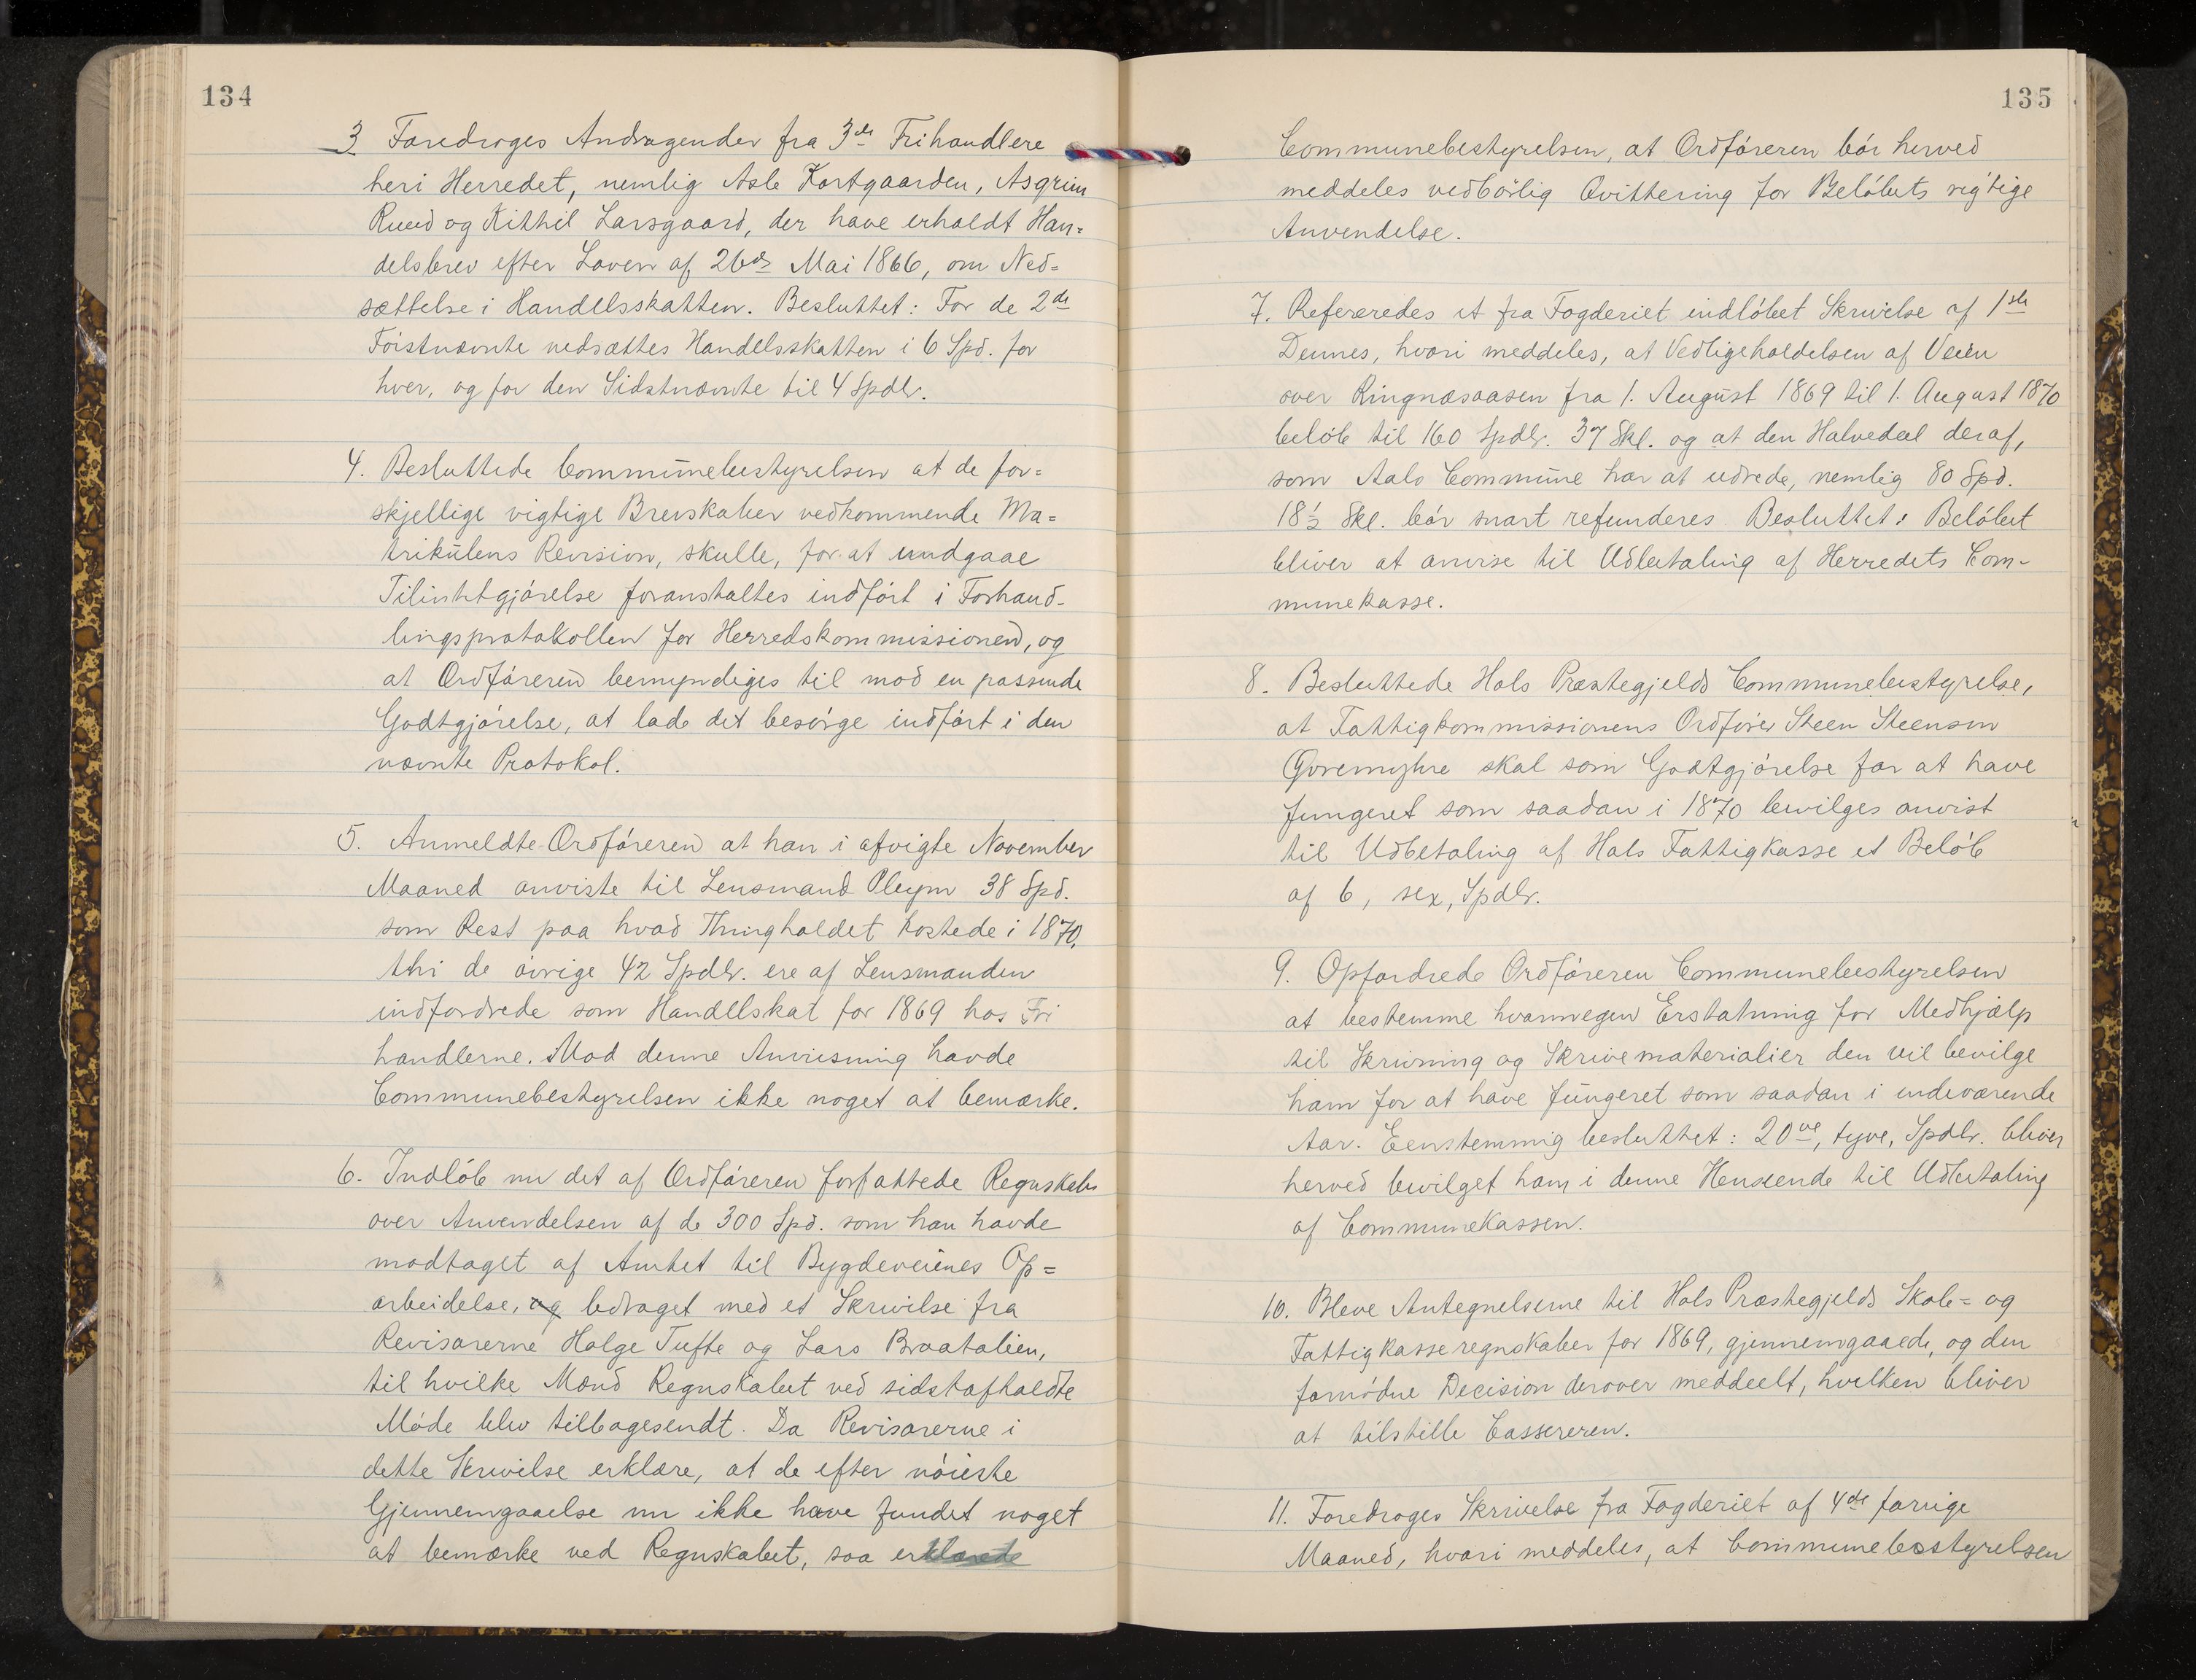 134
3 Foredroges Andragender fra 3de Frihandlere
heri Herredet, nemlig Asle Kortgaarden, Asgrim
Ruud og Kitthil Larsgaard, der have erholdt Han=
delsbrev efter Loven af 26de Mai 1866, om Ned=
sættelse i Handelsskatten. Besluttet: For de 2de
Förstnævnte nedsættes Handelsskatten i 6 Spd. for
hver, og for den Sidstnævnte til 4 Spdlr.
4. Besluttede Communebestyrelsen at de for=
skjellige vigtige Brevskaber vedkommende Ma=
trikulens Revision, skulle, for at undgaae
Tilinttgjörelse foranstaltes indfört i Forhand-
lingsprotokollen for Herredskommissionen, og
at Ordföreren bemyndiges til mod en passende
Godtgjörelse, at lade det besörge indfört i den
nævnte Protokol.
5. Anmeldte Ordföreren at han i afvigte November
Maaned anviste til Lensmand Pleym 38 Spd.
som Rest paa hvad Thingholdet kostede i 1870,
thi de övrige 42 Spdlr. ere af Lensmanden
indfordrede som Handelskat for 1869 hos Fri
handlerne. Mod denne Anvisning havde
Communebestyrelsen ikke noget at bemærke.
6. Indlöb nu det af Ordföreren forfattede Regnskab
over Anvendelsen af de 300 Spd. som han havde
modtaget af Amtet til Bygdeveienes Op=
arbeidelse, og ledsaget med et Skrivelse fra
Revisorerne Holge Tufte og Lars Braatalien,
til hvilke Mænd Regnskabet ved sidstafholdte
Möde blev tilbagesendt. Da Revisorerne i
dette Skrivelse erklære, at de efter nöieste
Gjennemgaaelse nu ikke have fundet noget
at bemærke ved Regnskabet, saa erklærede
135
Communebestyrelsen, at Ordföreren bör herved
meddeles vedbörlig Qvittering for Belöbets rigtige
Anvendelse.
7. Refereredes et fra Fogderiet indlöbet Skrivelse af 1ste
Dennes, hvori meddeles, at Vedligeholdelsen af Veien
over Ringnæsaasen fra 1. August 1869 til 1. August 1870
belöb til 160 Spdlr. 37 Skl. og at den Halvedel deraf,
som Aals Commune har at udrede, nemlig 80 Spd.
18½ Skl. bör snart refunderes Besluttet: Belöbet
bliver at anvise til Udbetaling af Herredets Com-
munekasse.
8. Besluttede Hols Præstegjelds Communebestyrelse,
at Fattigkommissionens Ordförer Steen Steensen
skal som Godtgjörelse for at have
fungeret som saadan i 1870 bevilges anvist
til Udbetaling af Hols Fattigkasse et Belöb
af 6, sex, Spdlr.
9. Opfordrede Ordföreren Communebestyrelsen
at bestemme hvormegen Erstatning for Medhjælp
til Skrivning og Skrivematerialier den vil bevilge
ham for at have fungeret som saadan i indeværende
Aar. Eenstemmig besluttet: 20ve, tyve, Spdlr. bliver
herved bevilget ham i denne Henseende til Udbetaling
af Communekassen.
10. Bleve Antegnelserne til Hols Præstegjelds Skole= og
Fattigkasseregnskaber for 1869, gjennemgaaede, og den
fornödne Decision derover meddeelt, hvilken bliver
at tilstille Cassereren.
11. Foredroges Skrivelse fra Fogderiet af 4de forrige
Maaned, hvori meddeles, at Communebestyrelsen